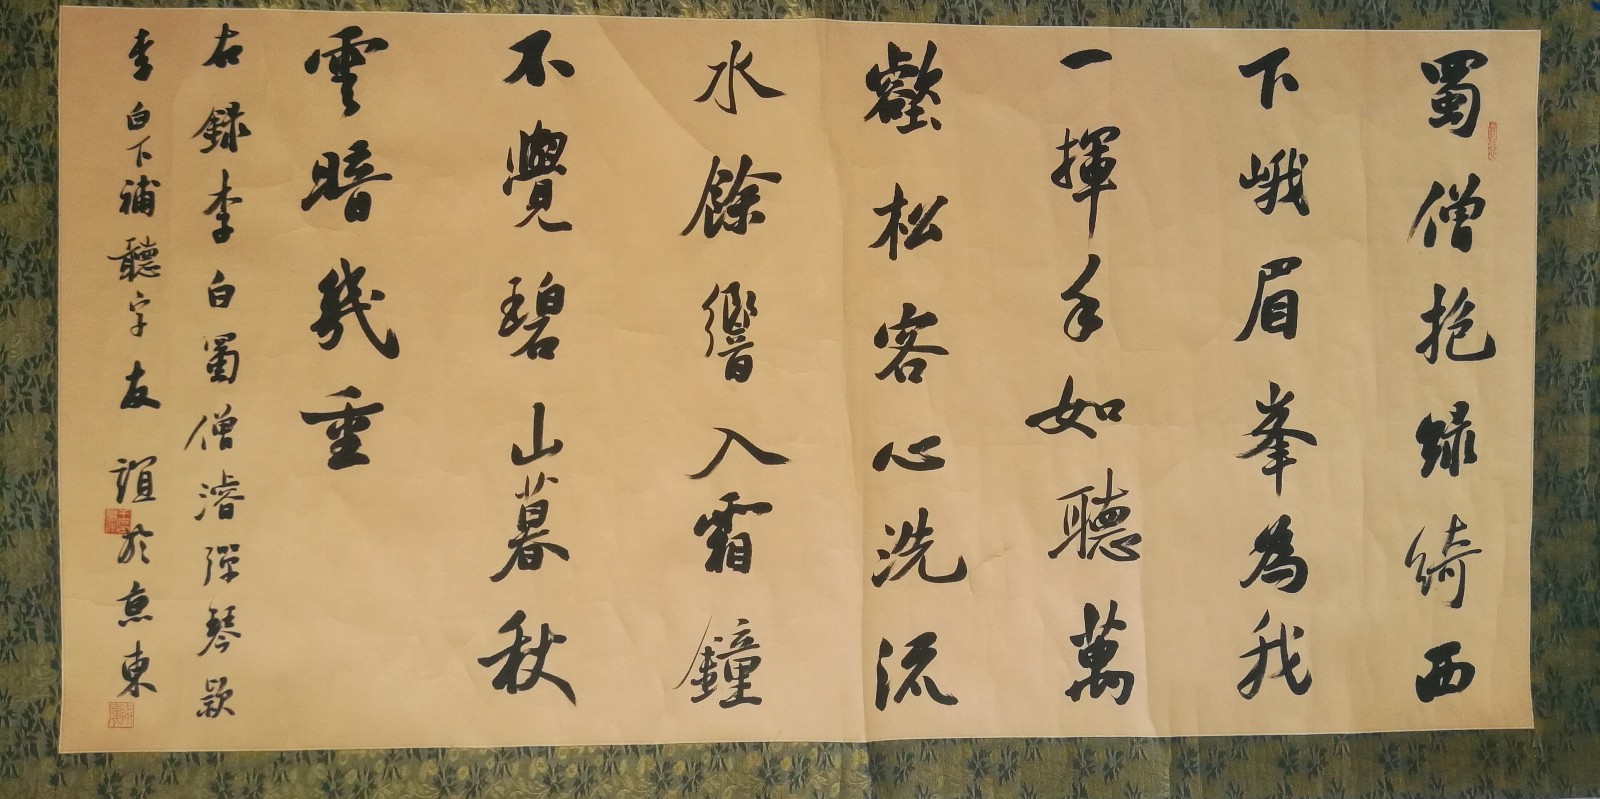 蜀僧抱綠綺西
下峨眉峯為我
一揮手如聽萬
壑松客心洗流
水餘響入霜鐘
不覺碧山暮秋
雲暗幾重
右錄李白蜀僧濬彈琴
李白下補聽字友誼於京東